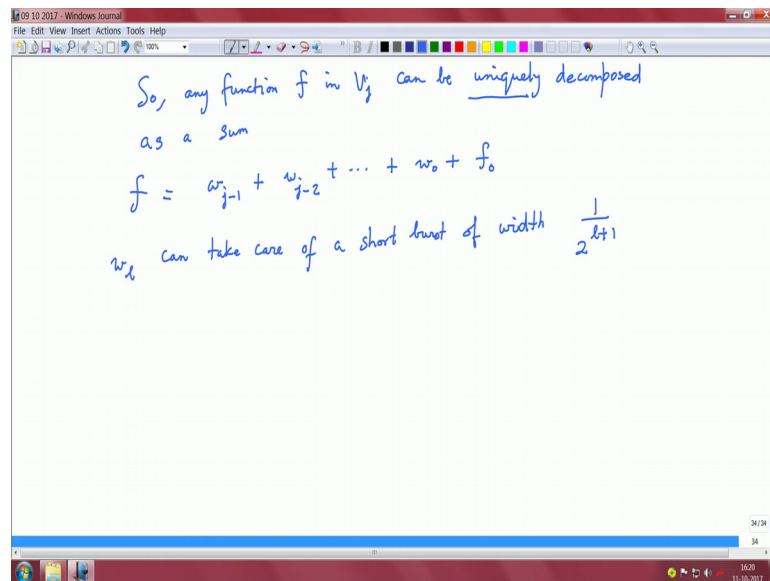 09 10 2017 - Windows Journal
File Edit View Insert Actions Tools Help
100%
So, any function f in V_j can be uniquely decomposed
as a sum
f = w_{j-1} + w_{j-2} + ... + w_0 + f_0
w_l can take care of a short burst of width 1/2^{l+1}
34/34
34
16:20
11-10-2017